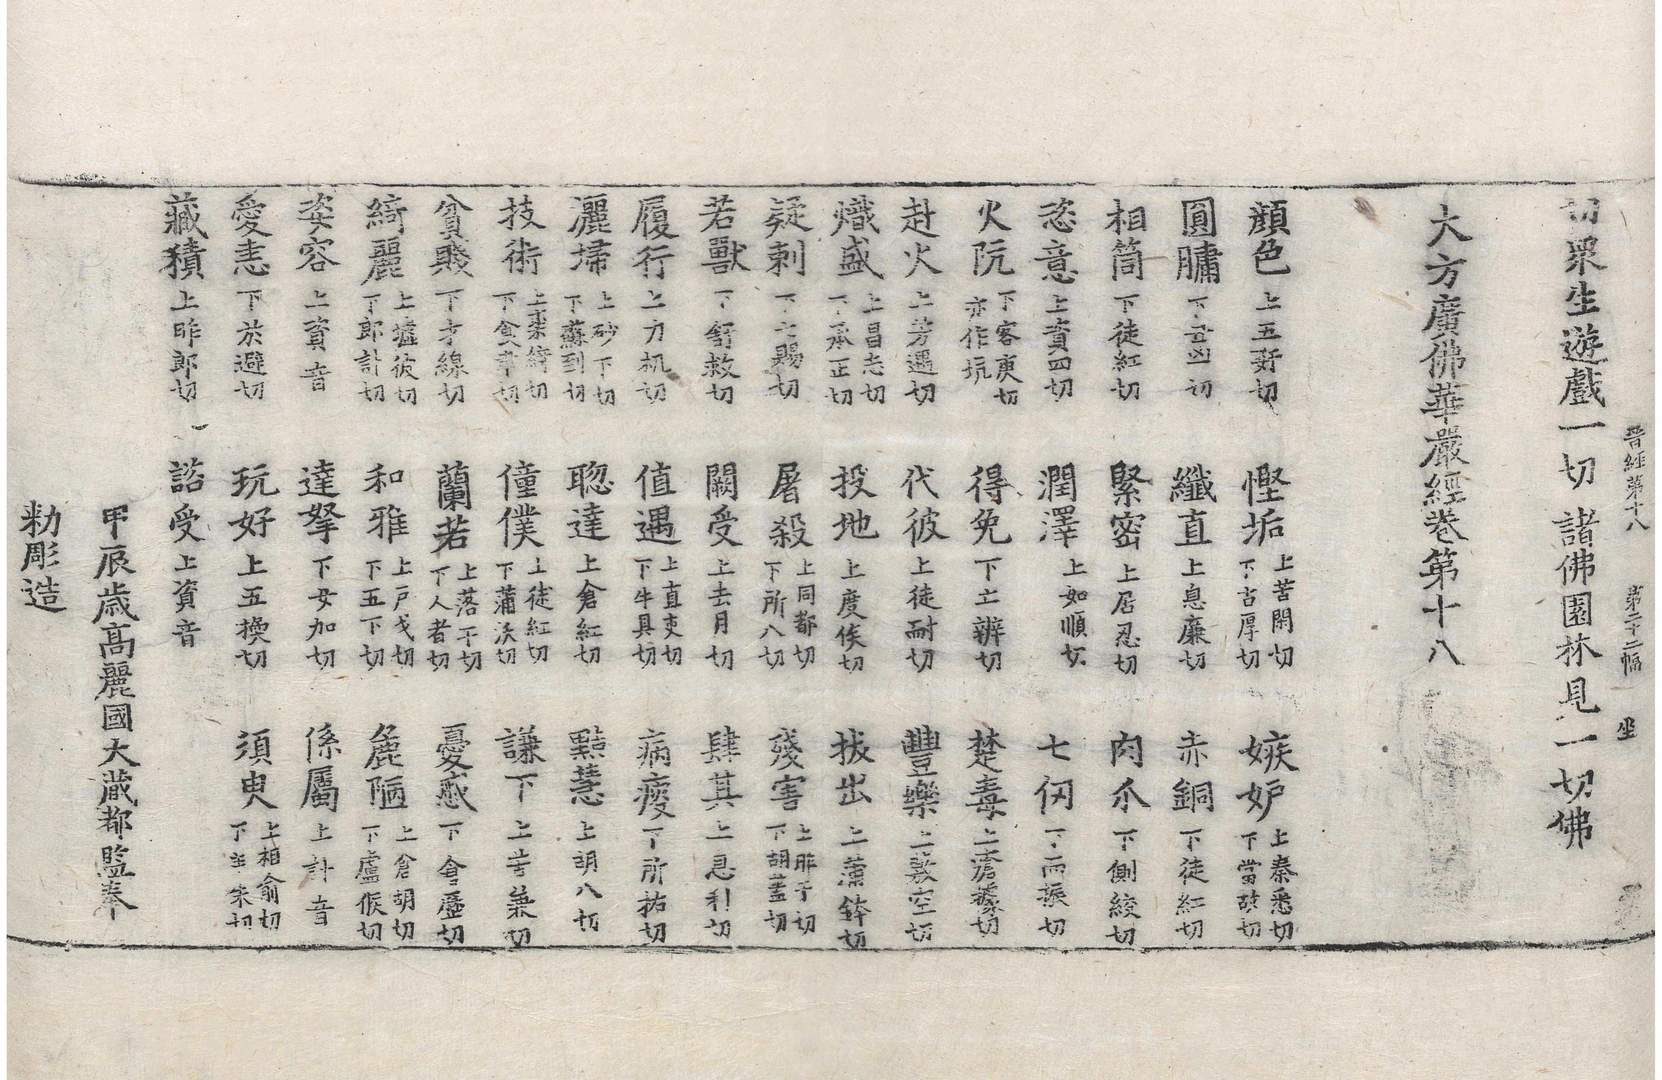 切衆生遊戲一切諸佛園林見一切佛
晉經第十八 第二十二幅 坐
大方廣佛華嚴經卷第十八
顔色上五姧切 慳垢上苦閑切下古厚切 嫉妒上秦悉切下當故切
圓𦟛下丑凶切 纖直上息廉切 赤銅下徒紅切
相筒下徒紅切 緊密上居忍切 肉爪下側絞切
恣意上資四切 潤澤上如順切 七仞下而振切
火阬下客庚切亦作坑 得免下亡辨切 楚毒上瘡據切
赴火上芳遇切 代彼上徒耐切 豐樂上敷空切
熾盛上昌志切下承正切 投地上度侯切 拔出上蒲鉢切
疑剌下七賜切 屠殺上同都切下所八切 殘害上昨干切下胡蓋切
若獸下舒救切 闕受上去月切 肆其上息利切
履行上力机切 值遇上直吏切下牛具切 病瘦下所祐切
灑埽上砂下切下蘇到切 聦達上倉紅切 黠慧上胡八切
技術上渠綺切下食聿切 僮僕上徒紅切下蒲沃切 謙下上苦兼切
貧賤下才線切 蘭若上落干切下人者切 憂慼下倉歷切
綺麗上墟彼切下郎計切 和雅上戸戈切下五下切 麁陋上倉胡切下盧候切
姿容上資音 達拏下女加切 係屬上計音
愛恚下於避切 玩好上五換切 須臾上相俞切下羊朱切
藏積上昨郎切 諮受上資音
甲辰歳高麗國大藏都監奉
勑彫造